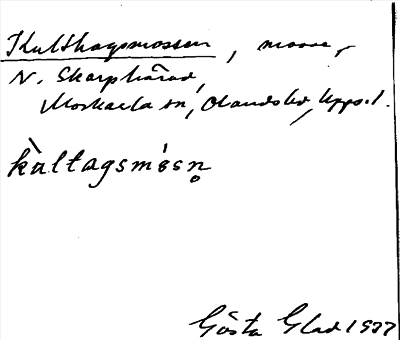 Kulthagsmossen, mosse,
N. Skarphärad,
Morkarla sn, Olandshd, Upps.l.
kùltagsmósn̥
Gösta Glad 1937